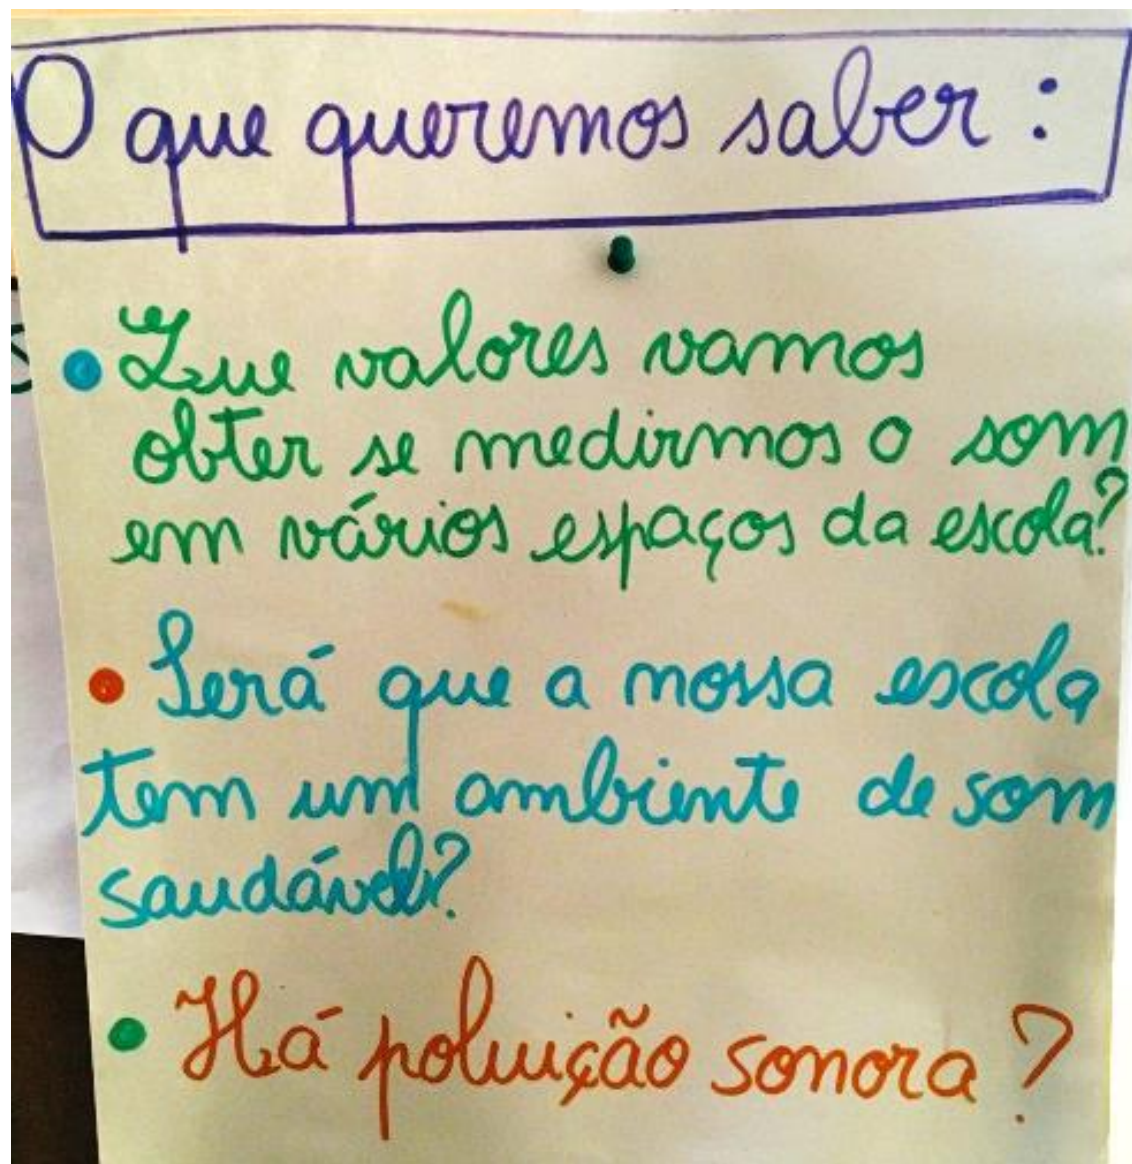 O que queremos saber:
• Que valores vamos
obter se medirmos o som
em vários espaços da escola?
• Será que a nossa escola
tem um ambiente de som
saudável?
• Há poluição sonora?